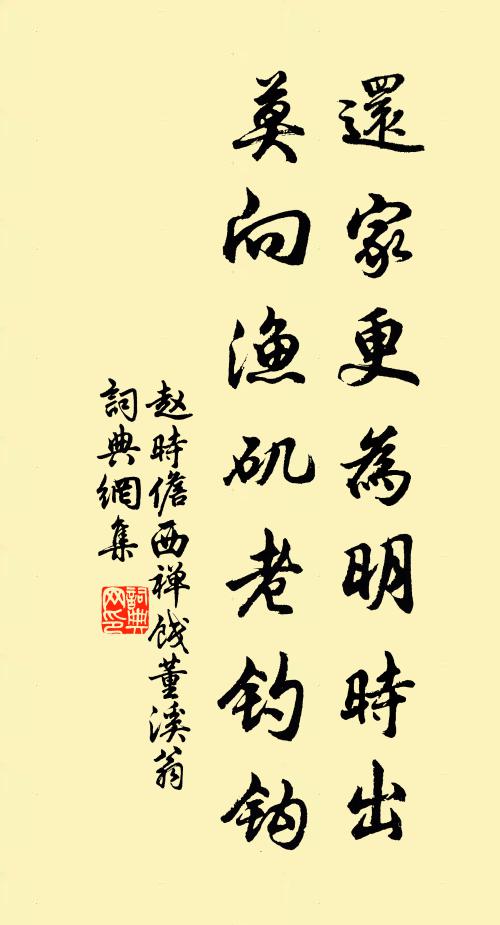 還家更為明時出
莫向漁矶老钓钩
赵時儋西禅餞董溪翁
詞典網集
詞典网印